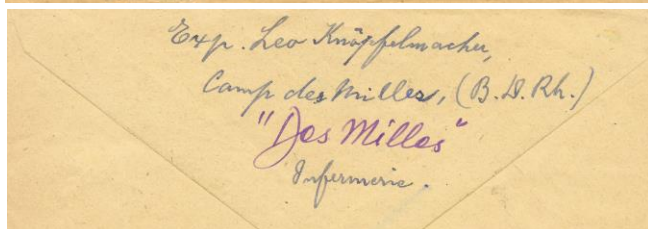 Exp. Leo Knöpfelmacher,
Camp des Milles, (B. D. Rh.)
"Des Milles"
Infermerie.